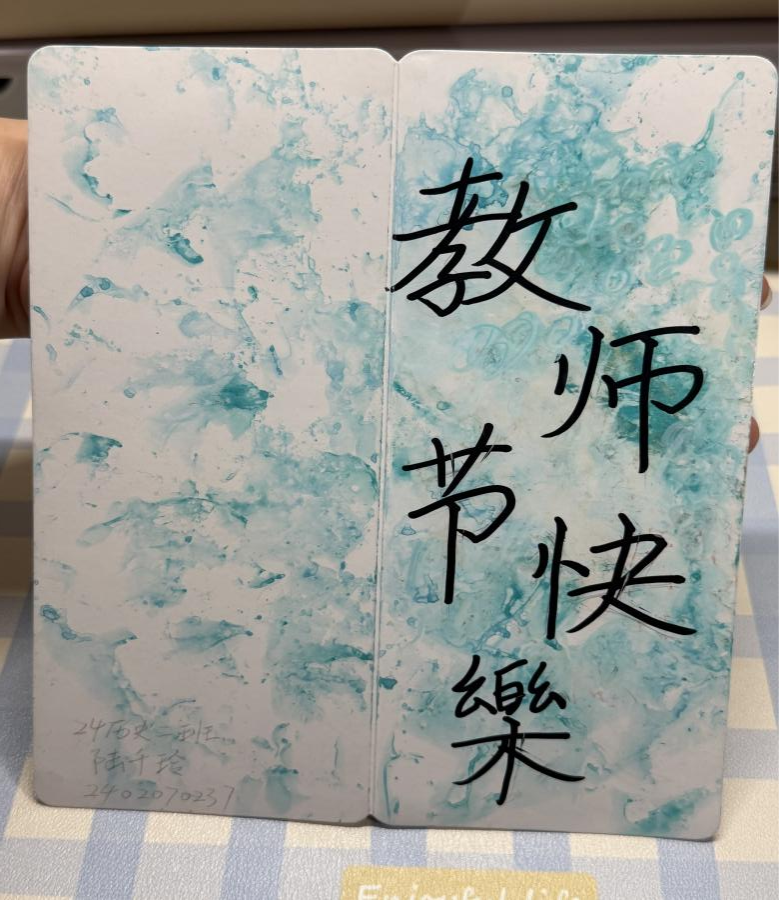 教师节快樂
24历史二班
陆千玲
2402070237